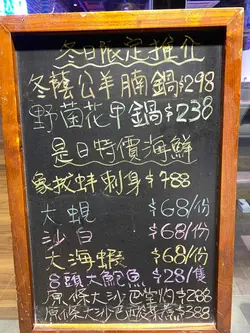 冬日限定推介
冬蔭公羊腩鍋$298
野菌花甲鍋$238
是日特價海鮮
象拔蚌刺身$788
大蜆 $68/份
沙白 $68/份
大海蝦 $68/份
8頭大鮑魚 $28/隻
原條大沙巴堂灼$288
原條大沙巴$388